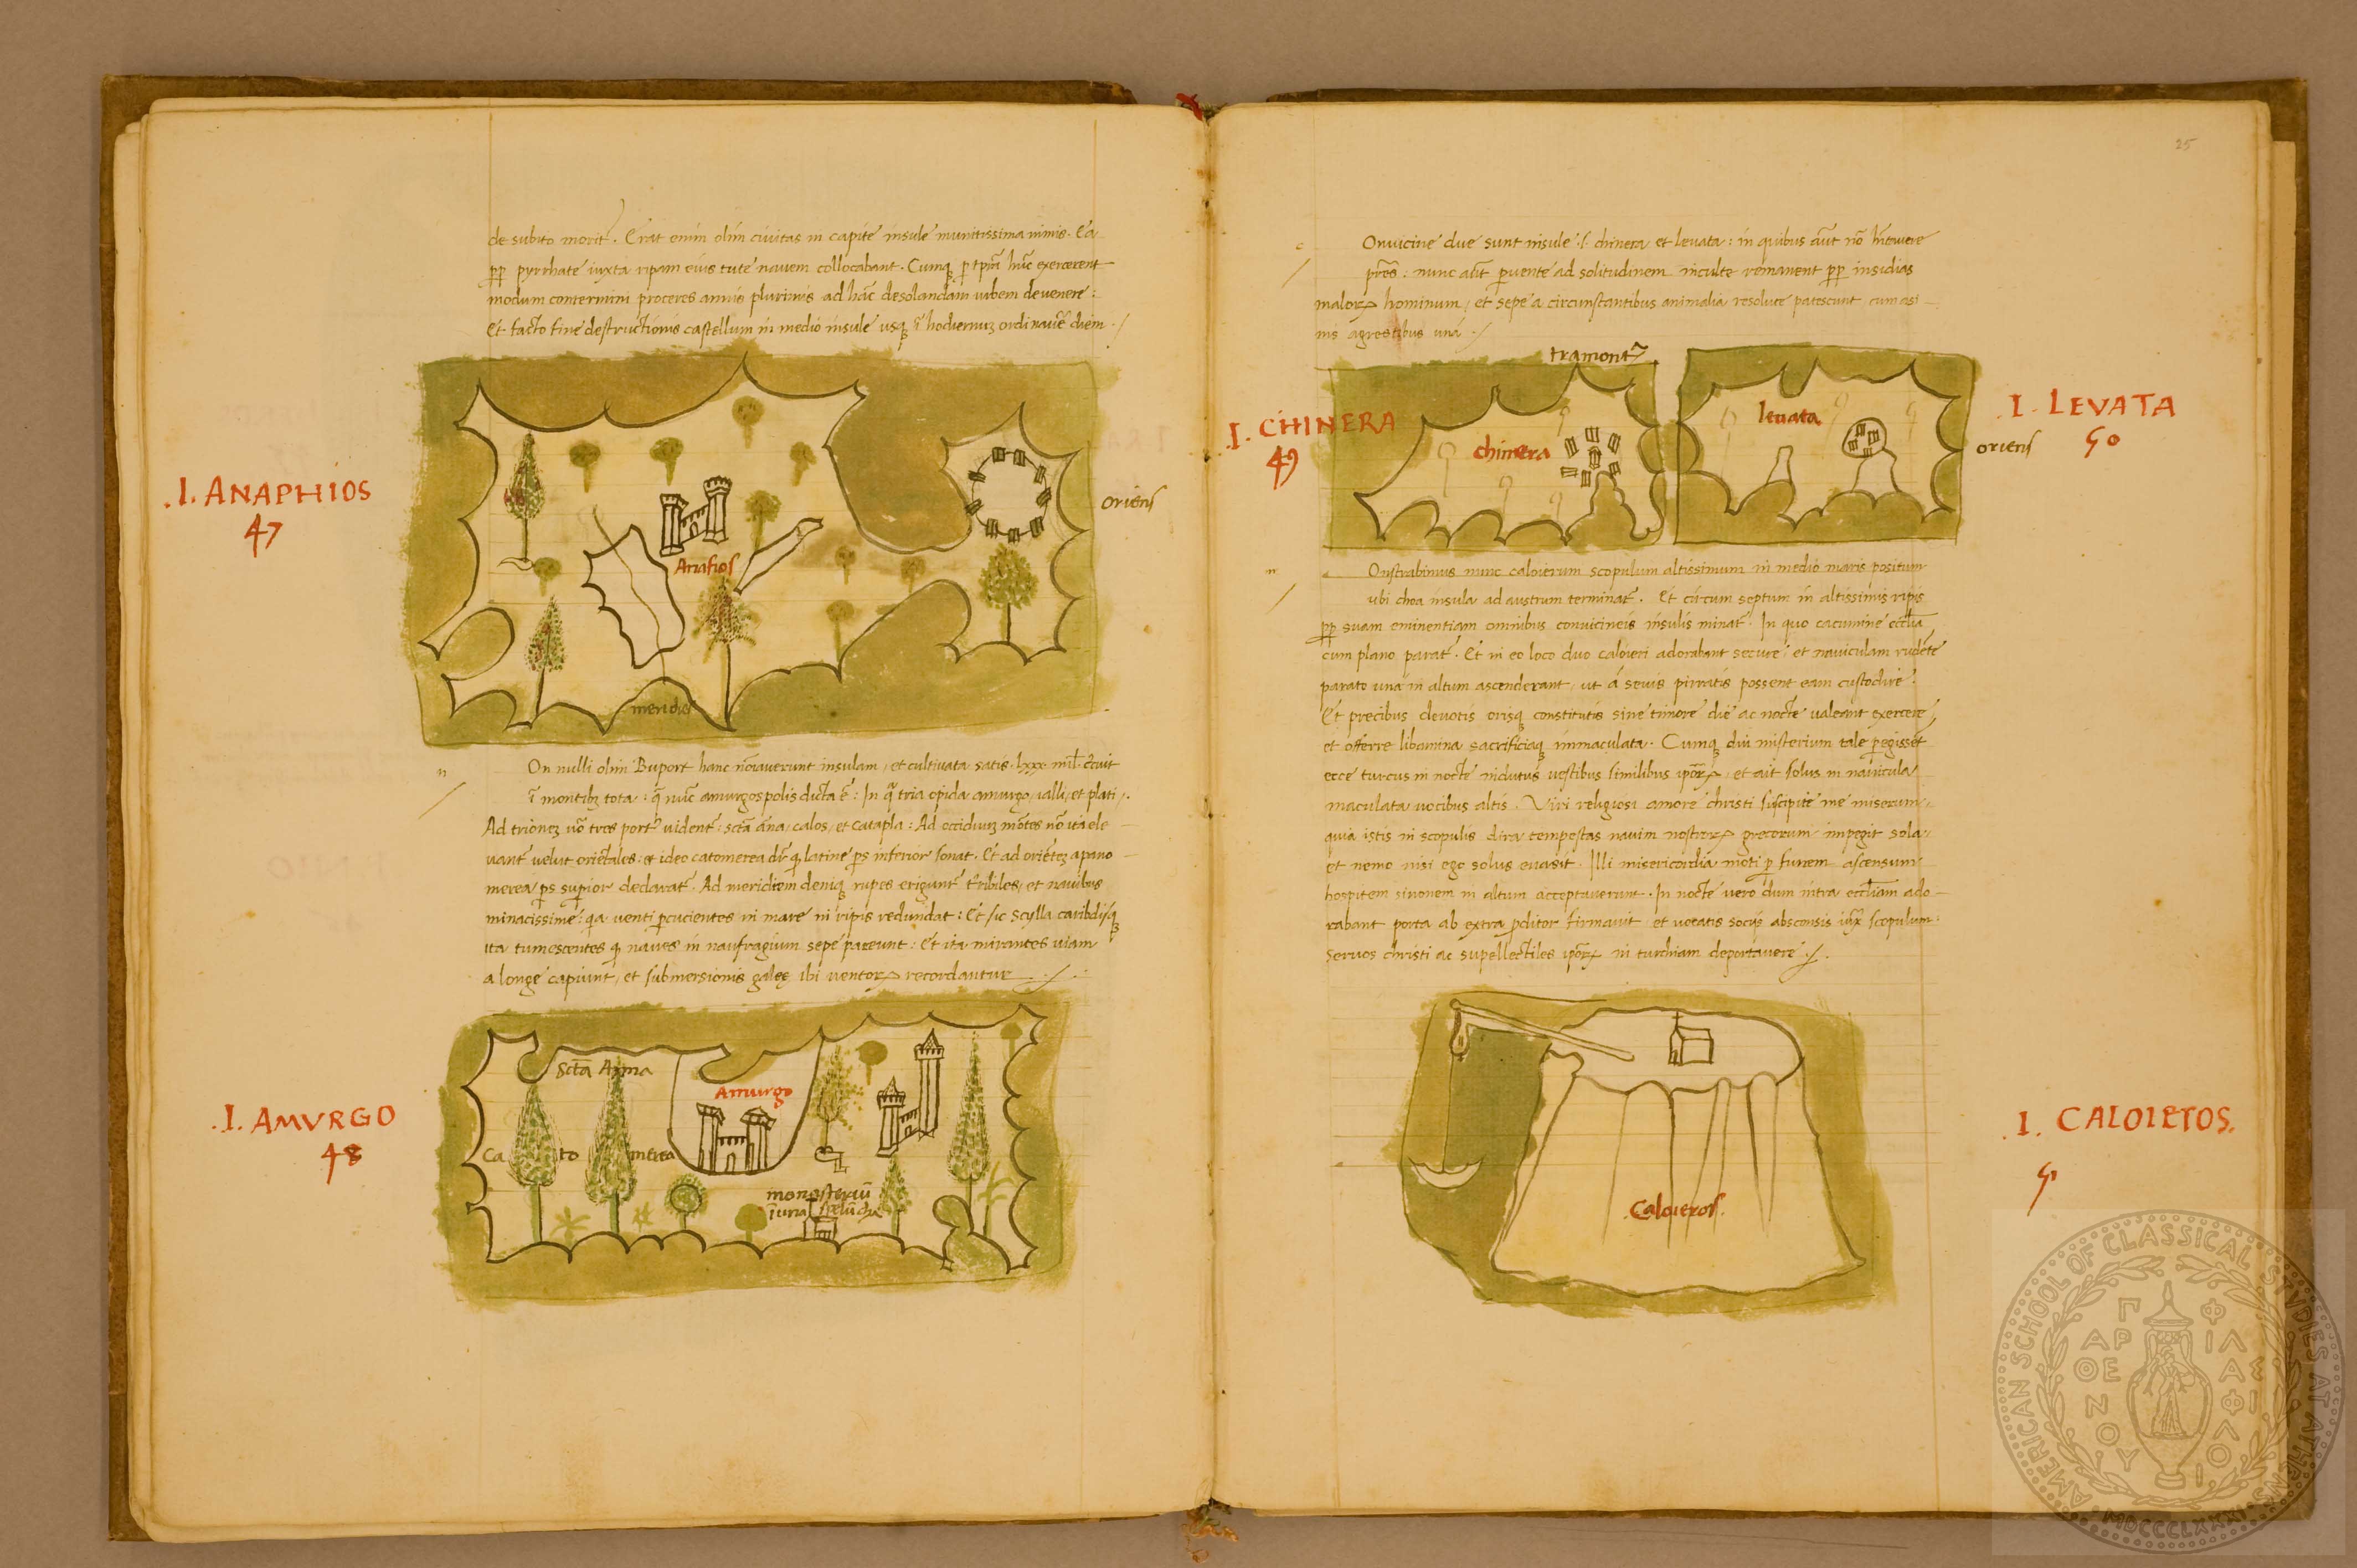 de subito morit̃. Erat enim olim civitas in capite insule munitissima nimis. Ea
pp pyrrhate iuxta ripam eius tute navem collocabant. Cumq p tp̃ra hũc exercerent
modum contermini proceres annis plurimis ad hãc desolandam urbem devenere:
Et facto fine destructionis castellum in medio insule usq ĩ hodiernuz ordinavẽ diem ./
.I. ANAPHIOS
47
Anafios
oriens
meridies
n
On nulli olim Buport hanc nõiaverunt insulam, et cultivata satis .lxxx. mil̃. circuit
ĩ montibz tota: q̃ nũc amurgospolis dicta ẽ: In q̃ tria opida amurgo, ialli, et plati.
Ad trionez uõ tres port9 vident̃, sctã ãna, calos, et catapla: Ad occiduuz mõtes nõ ita ele
vant̃ velut oriẽtales: et ideo catomerea dr̃ q latine ps inferior sonat. Et ad oriẽtez apano
merea ps supior declarat̃. Ad meridiem deniq rupes erigunt̃ t̃ribiles, et navibus
minacissime: q̃a venti pcucientes in mare in ripis redundat: Et sic scylla caribdisq
ita tumescentes q naves in naufragium sepe pereunt: Et ita mirantes viam
a longe capiunt, et submersionis galeę ibi ventoꝝ recordantur ./.
.I. AMVRGO
48
Sctã Anna
Amurgo
Ca to merea
monasteriũ
ĩ una spelũcha
25
c
Onvicine due sunt insule .s. chinera et levata: in quibus aũt nõ h̃itavere
p̃res: nunc aũt pvente ad solitudinem inculte remanent pp insidias
maloꝝ hominum, et sepe a circunstantibus animalia resolute patescunt cum asi
nis agrestibus una ./
tramont
.I. CHINERA
49
chinera
levata
oriens
I. LEVATA
50
n
Onstrabimus nunc caloierum scopulum altissimum in medio maris positum
ubi choa insula ad austrum terminat̃. Et circum septum in altissimis ripis
pp suam eminentiam omnibus convicineis insulis minat̃. In quo cacumine ecclĩa
cum plano parat̃. Et in eo loco duo caloieri adorabant secure, et naviculam rudẽte
parato una in altum ascenderant, ut á sevis pirratis possent eam custodire.
Et precibus devotis orisq constitutis sine timore die ac nocte valeant exercere,
et offerre libamina sacrificiaq immaculata. Cumq diu misterium tale pegisset
ecce turcus in nocte indutus vestibus similibus ipõrꝝ, et ait solus in navicula
maculata vocibus altis. Viri religiosi amore christi suscipite me miserum,
quia istis in scopulis dira tempestas navim nostroꝝ grecorum impegit sola
et nemo nisi ego solus evasit. Illi misericordia moti p funem ascensum
hospitem sinonem in altum acceptaverunt. In nocte vero dum intra ecclĩam ado
rabant porta ab extra pditor firmavit et vocatis sociis absconsis iux̃ scopulum
servos christi ac supellectiles ipõrꝝ in turchiam deportavere ./.
I. CALOIEROS.
51
Caloieros.
AMERICAN SCHOOL OF CLASSICAL STUDIES AT ATHENS
MDCCCLXXXI
ΠΑΡΘΕΝΟΥ ΦΙΛΑΣ ΦΙΛΟΙ